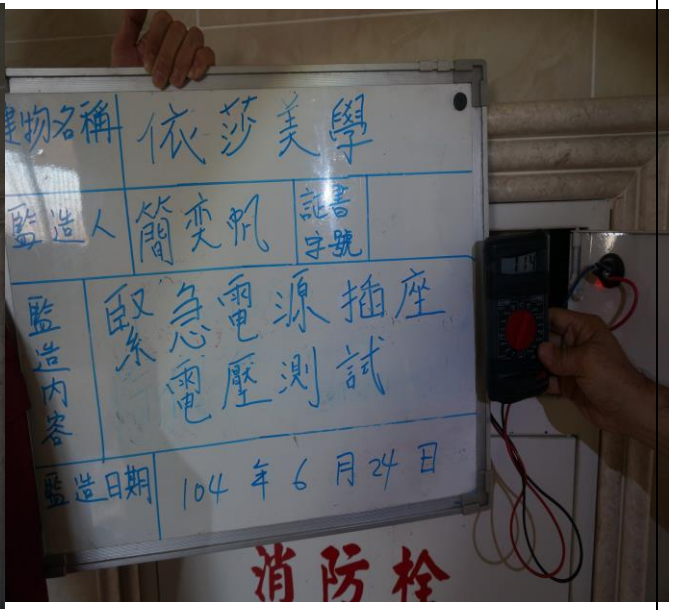 建物名稱 依莎美學
監造人 簡奕帆 証書字號
監造內容 緊急電源插座
電壓測試
監造日期 104年6月24日
消防栓